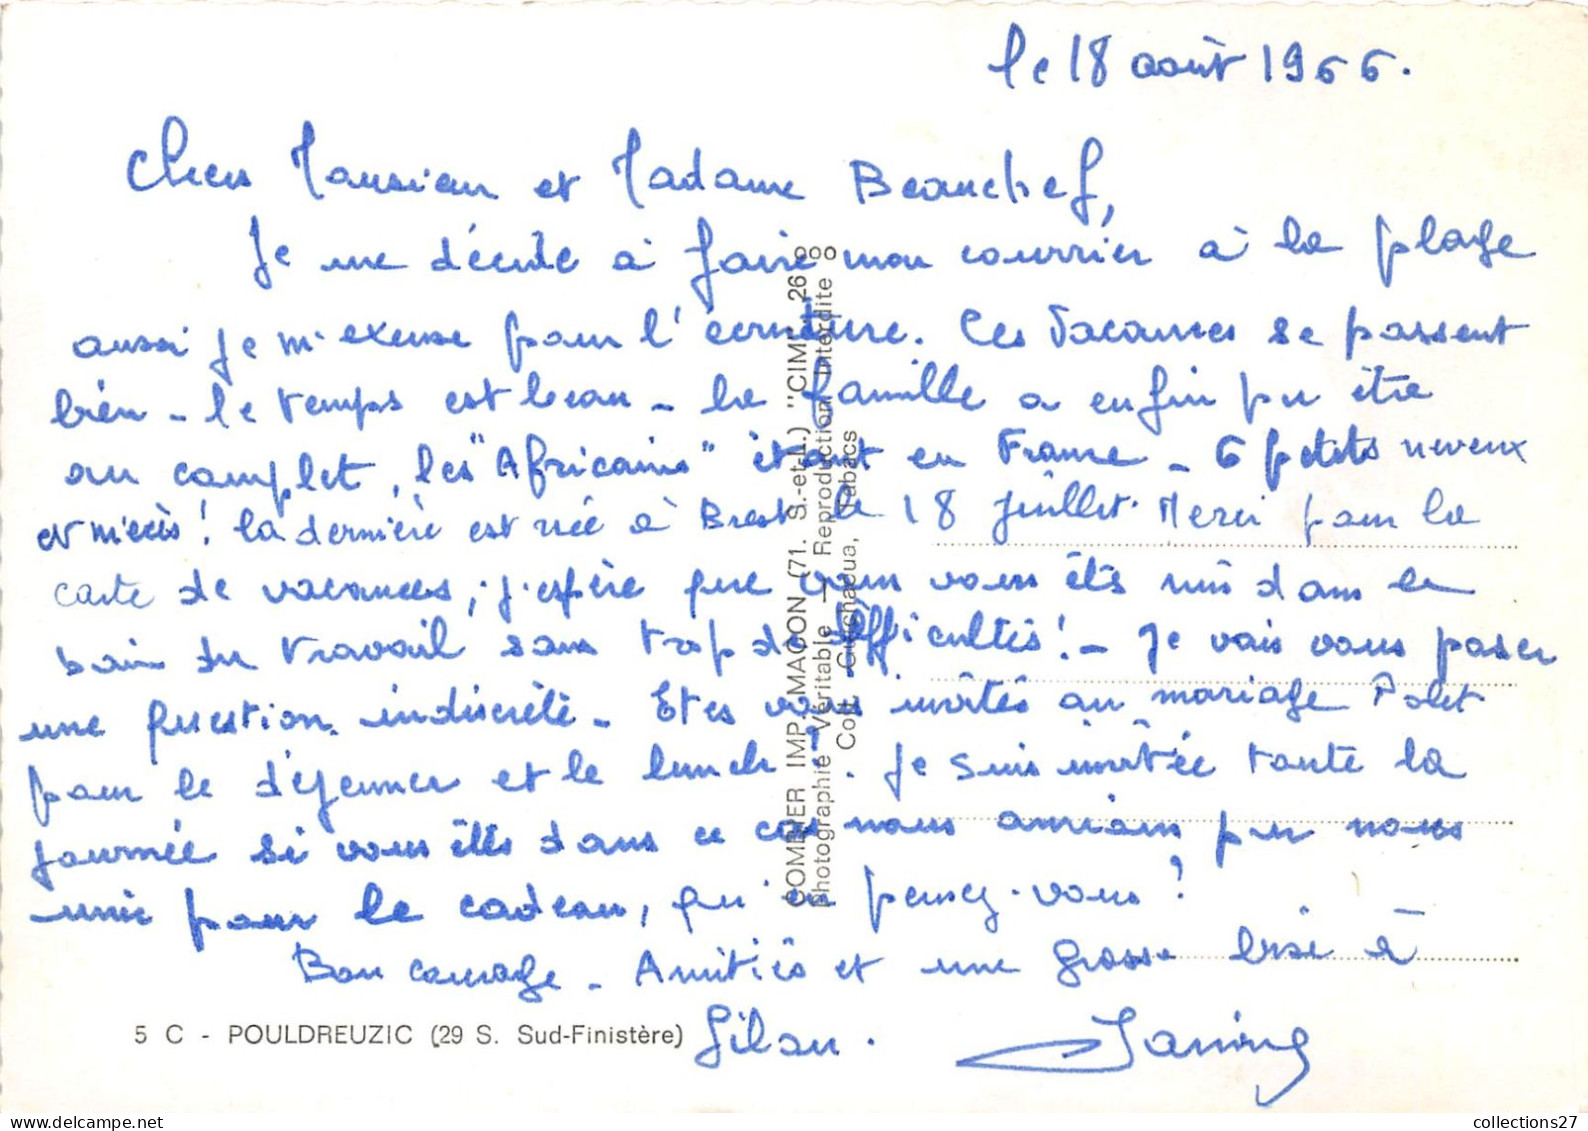 le 18 août 1966.
Chers Monsieur et Madame Beauchef,
Je me décide à faire mon courrier à la plage
aussi je m'excuse pour l'écriture. Les vacances se passent
bien - le temps est beau - la famille a enfin pu être
au complet, les "Africains" étant en France - 6 petits neveux
et nièces! la dernière est née à Brest le 18 juillet. Merci pour la
carte de vacances, j'espère que vous vous êtes mis dans le
bain du travail sans trop de difficultés! - Je vais vous poser
une question indiscrète - Etes vous invités au mariage
pour le déjeuner et le lunch? Je suis invitée toute la
journée si vous êtes dans ce cas nous aurions pu nous
unir pour le cadeau, qu'en pensez-vous?
Bon courage - Amitiés et une grosse bise à
Gilan.
5 C - POULDREUZIC (29 S. Sud-Finistère)
COMBIER IMP. MACON (71. S.-et-L.) "CIM" 26
Photographie Véritable - Reproduction Interdite
Coll. Tabacs
collections27